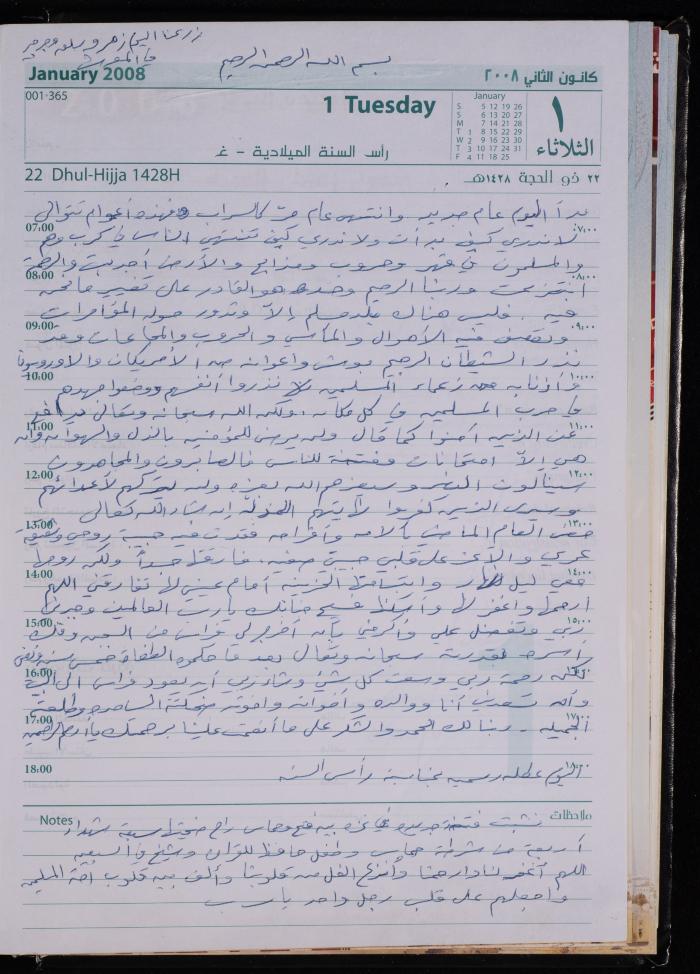 زرعنا اليوم زهر وبصله وجرجير
في الحديقة
بسم الله الرحمن الرحيم
January 2008
كانون الثاني ٢٠٠٨
001-365
1 Tuesday
January
S 5 12 19 26
S 6 13 20 27
M 7 14 21 28
T 1 8 15 22 29
W 2 9 16 23 30
T 3 10 17 24 31
F 4 11 18 25
١
الثلاثاء
رأس السنة الميلادية - غ
22 Dhul-Hijja 1428H
٢٢ ذو الحجة ١٤٢٨هـ
بدأ اليوم عام جديد وانتهى عام مرّ كالسراب فهذه أعوام تتوالى
07:00 ٠٧:٠٠
لا ندري كيف بدأت ولا ندري كيف تنتهي الناس في كرب وهم
والمسلمون في قهر وحروب ومذابح والأرض أجدبت والرحمة
08:00 ٠٨:٠٠
انتزعت وربنا الرحيم وحده هو القادر على تغيير ما نحن
فيه . فليس هناك بلد مسلم إلا وتدور حوله المؤامرات
09:00 ٠٩:٠٠
وتعصف فيه الأهوال والمآسي والحروب والمجاعات وقد
نذر الشيطان الرجيم بوش وأعوانه من الأمريكان والاوروبيون
10:00 ١٠:٠٠
وأذنابه من زعماء المسلمين نذروا أنفسهم ووضعوا جهدهم
في حرب المسلمين في كل مكان، ولكن الله سبحانه وتعالى يدافع
11:00 ١١:٠٠
عن الذين آمنوا كما قال ولن يرضى للمؤمنين بالذل والهوان وانه
هي إلا امتحانات وفتنة للناس فالصابرون والمجاهدون
12:00 ١٢:٠٠
سينالون النصر وسيعزهم الله بعزه ولن يتركهم لأعدائهم
وسيرى الذين كفروا لآيتهم المذلة إن شاء الله تعالى
13:00 ١٣:٠٠
مضى العام الماضي بآلامه وأفراحه فقدت فيه حبيبة روحي وشقيقة
عمري والأعز على قلبي حبيبتي صفيه . فارقتنا جسداً ولكن روحها
14:00 ١٤:٠٠
معي ليل نهار وابتسامتها الحزينة أمام عيني لا تفارقني اللهم
ارحمها واغفر لها واسكنها فسيح جناتك يارب العالمين وجبرني
15:00 ١٥:٠٠
ربي وتفضل علي وأكرمني بأن أخرج لي فراس من السجن وفك
أسره بقدرته سبحانه وتعالى بعد ما حكموه الطغاة خمس سنين ونصف
16:00 ١٦:٠٠
لكن رحمة ربي وسعت كل شيء وشاء ربي أن يعود فراس الى البيت
وأن تسعدنا أنا ووالده وأخواته وأخوته ضحكته الساحره وطلعته
17:00 ١٧:٠٠
الجميله .. ربنا لك الحمد والشكر على ما أنعمت علينا برحمتك يا أرحم الراحمين
18:00 ١٨:٠٠
اليوم عطله رسميه بمناسبة رأس السنه
Notes ملاحظات
نشبت فتنة جديده في غزه بين فتح وحماس راح ضحيتها سبعة شهداء
أربعة من شرطة حماس وطفل حافظ للقرآن وشيخ في السبعين
اللهم اغفر لنا وارحمنا وأنزع الغل من قلوبنا وألف بين قلوب أمة المسلمين
واجعلهم على قلب رجل واحد يارب